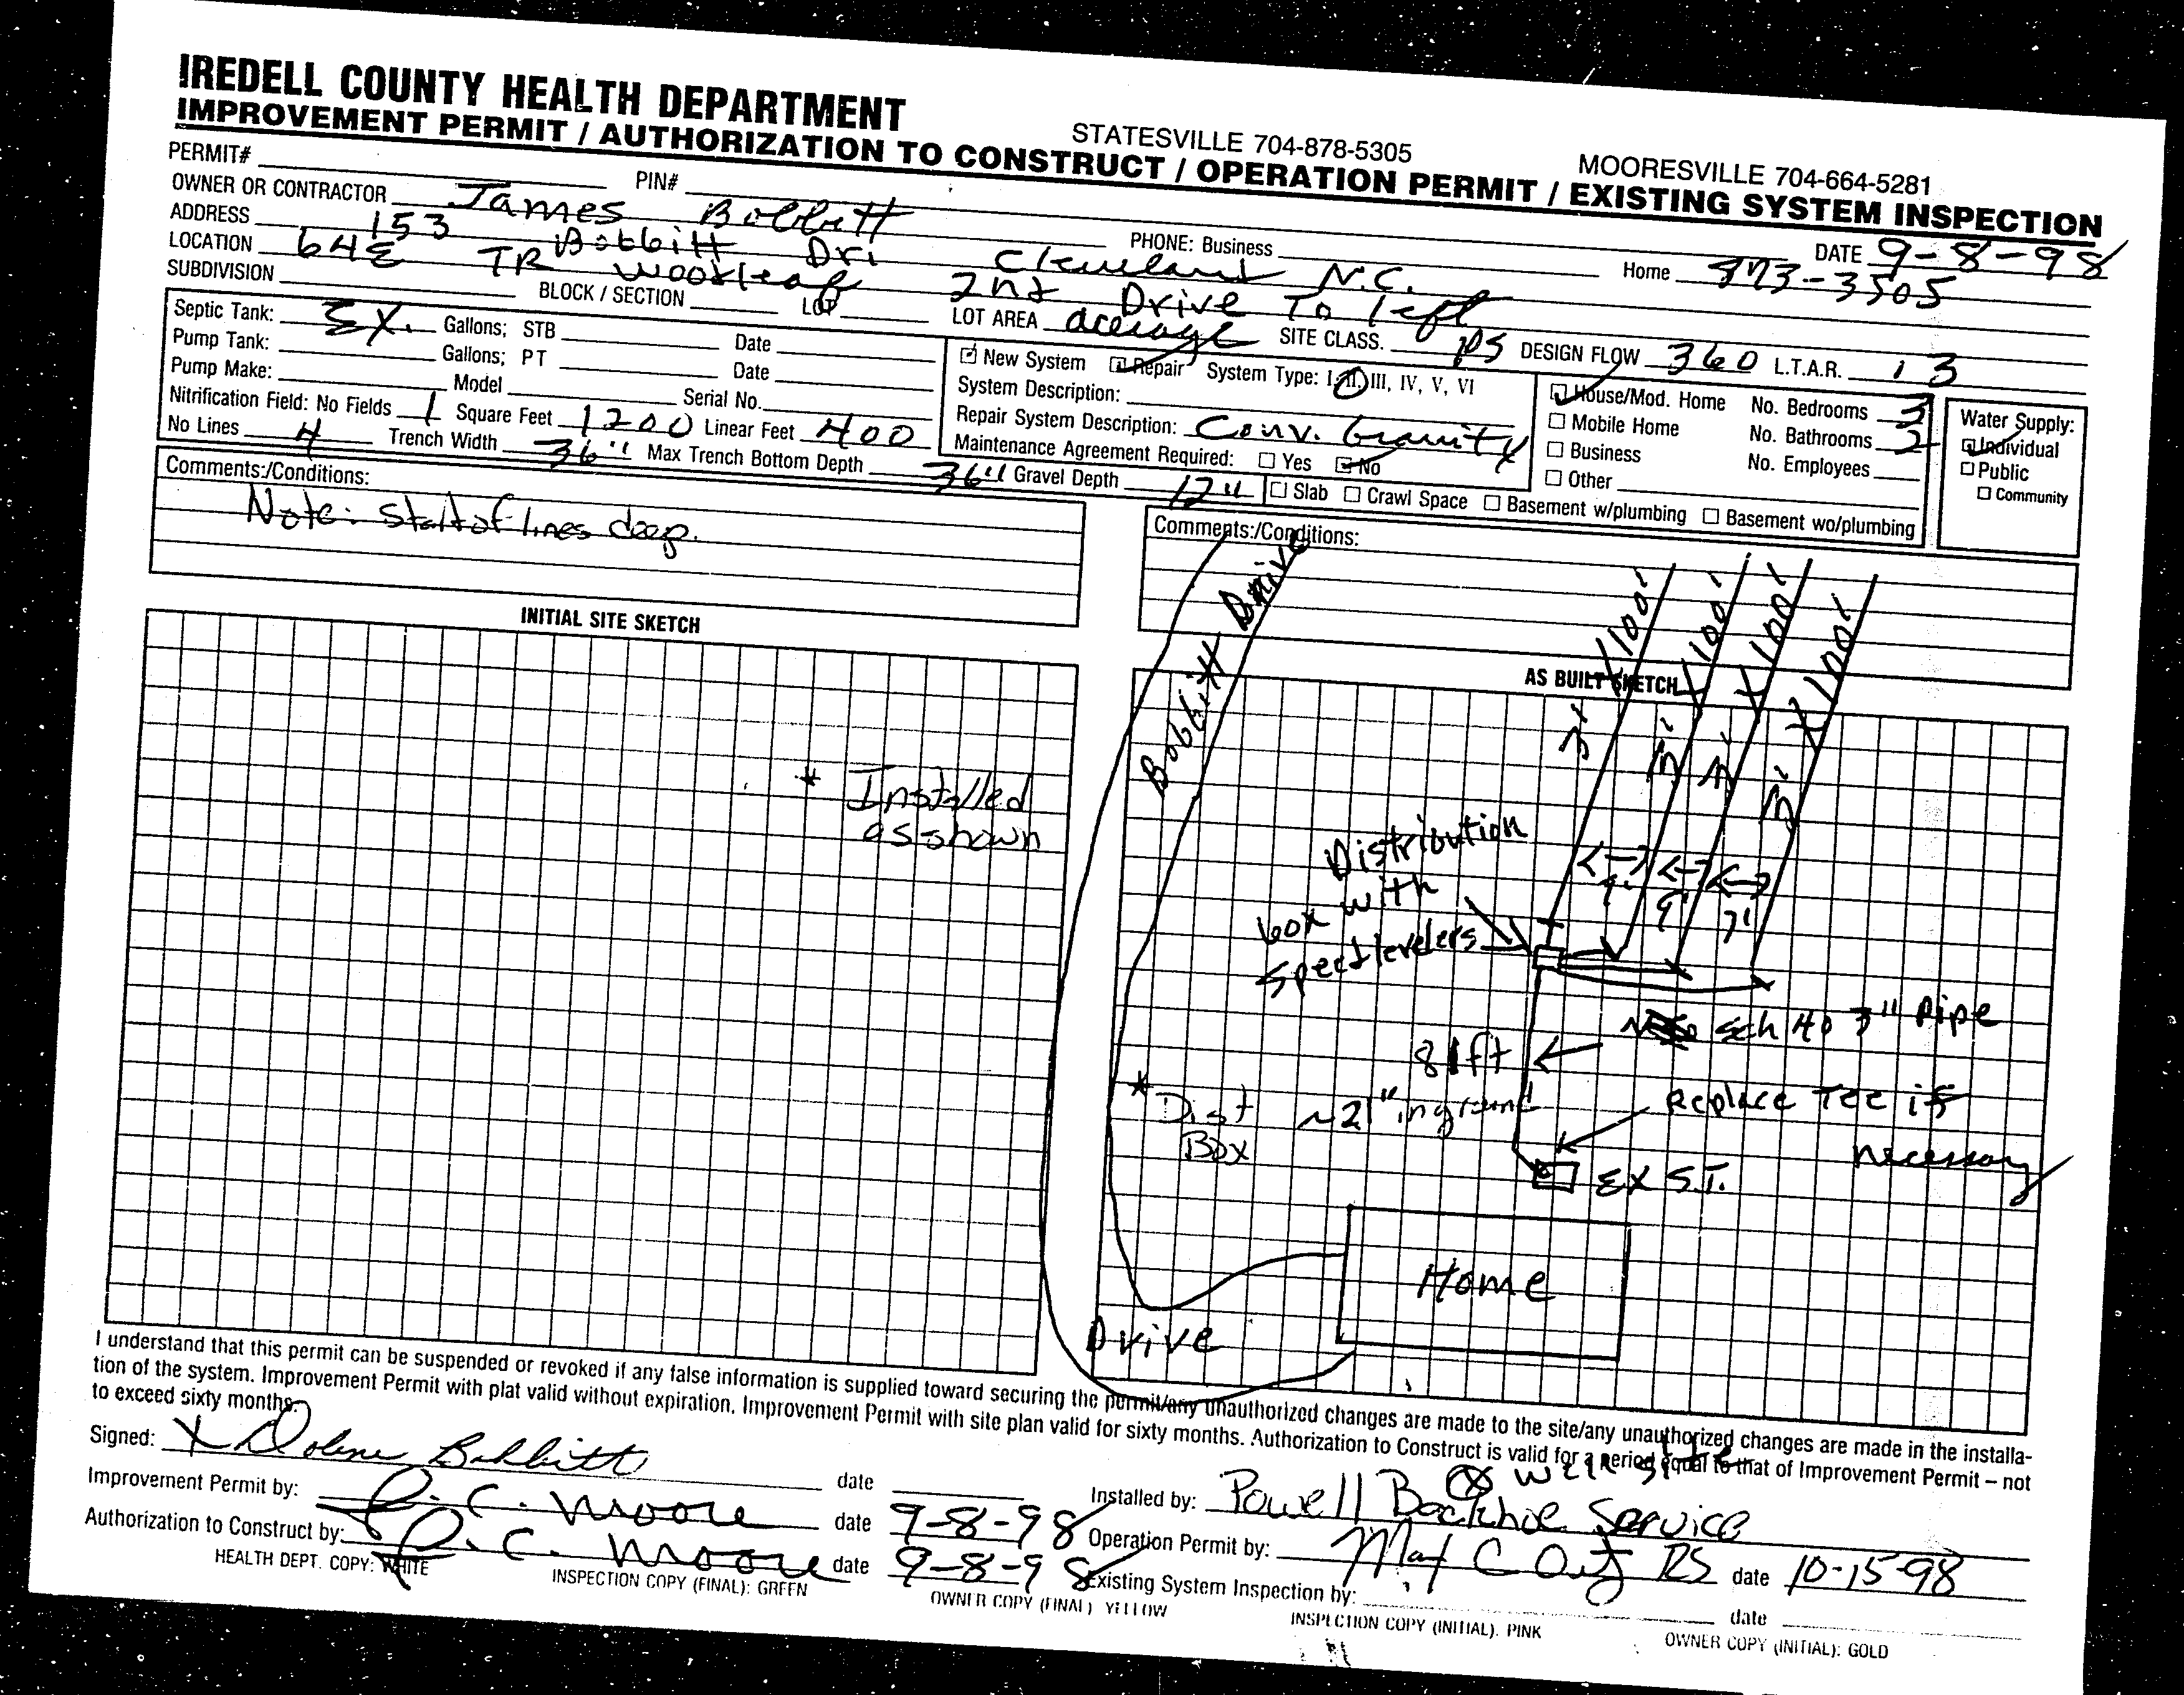 IREDELL COUNTY HEALTH DEPARTMENT
STATESVILLE 704-878-5305 MOORESVILLE 704-664-5281
IMPROVEMENT PERMIT / AUTHORIZATION TO CONSTRUCT / OPERATION PERMIT / EXISTING SYSTEM INSPECTION
PERMIT# PIN# DATE 9-8-98
OWNER OR CONTRACTOR James Bobbitt PHONE: Business Home 873-3505
ADDRESS 153 Bobbitt Dr. Cleveland N.C.
LOCATION 64E TR Woodleaf 2nd Drive To left
SUBDIVISION BLOCK / SECTION LOT LOT AREA acerage SITE CLASS. PS DESIGN FLOW 360 L.T.A.R. .3
Septic Tank: Ex. Gallons; STB Date
Pump Tank: Gallons; PT Date
Pump Make: Model Serial No.
Nitrification Field: No Fields 1 Square Feet 1200 Linear Feet 400
No Lines 4 Trench Width 36" Max Trench Bottom Depth 36" Gravel Depth 12"
New System Repair System Type: I, II, III, IV, V, VI
System Description:
Repair System Description: Conv. Gravity
Maintenance Agreement Required: Yes No
House/Mod. Home No. Bedrooms 3
Mobile Home No. Bathrooms 2
Business No. Employees
Other
Slab Crawl Space Basement w/plumbing Basement wo/plumbing
Water Supply:
Individual
Public
Community
Comments:/Conditions:
Note: Start of lines deep.
Comments:/Conditions:
INITIAL SITE SKETCH
* Installed
as shown
AS BUILT SKETCH
Bobbitt Drive
100' 100' 100' 100'
3' 3' 3' 3'
9' 9' 7'
Distribution
box with
Speedlevelers
Sch 40 3" Pipe
81ft
* Dist ~21" inground
Box
Replace Tee if
necessary
EX S.T.
Home
Drive
I understand that this permit can be suspended or revoked if any false information is supplied toward securing the permit/any unauthorized changes are made to the site/any unauthorized changes are made in the installa-
tion of the system. Improvement Permit with plat valid without expiration. Improvement Permit with site plan valid for sixty months. Authorization to Construct is valid for a period equal to that of Improvement Permit – not
to exceed sixty months.
well site
Signed: X Dolene Bobbitt date
Installed by: Powell Backhoe Service
Improvement Permit by: R. C. Moore date 9-8-98
Operation Permit by: RS date 10-15-98
Authorization to Construct by: R. C. Moore date 9-8-98
Existing System Inspection by: date
HEALTH DEPT. COPY: WHITE INSPECTION COPY (FINAL): GREEN OWNER COPY (FINAL) YELLOW INSPECTION COPY (INITIAL). PINK OWNER COPY (INITIAL): GOLD